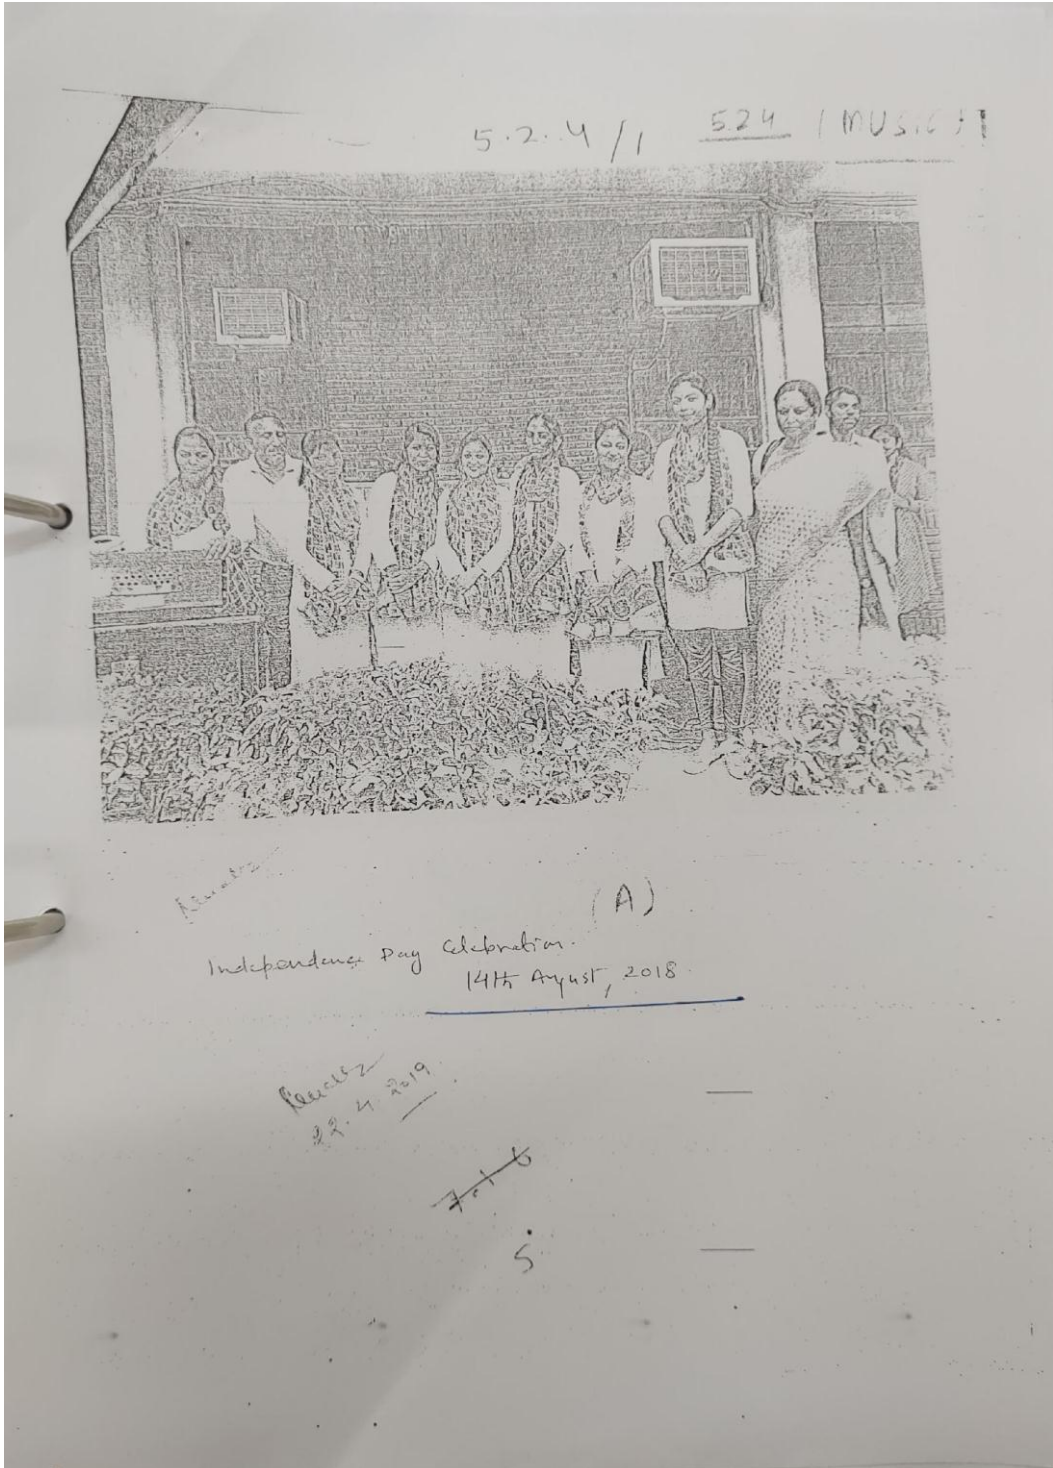 5.2.4/1
5.2.4 / MUSIC / 1
(A)
Independence Day Celebration.
14th August, 2018.
22.4.2019
5